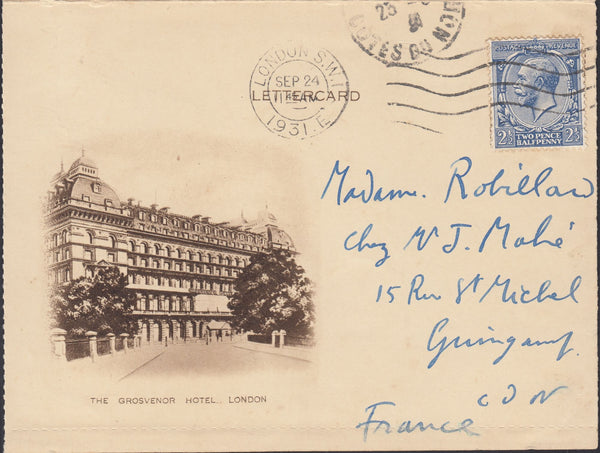 CÔTES DU NORD
LONDON S.W.1
SEP 24
1931.E
LETTERCARD
POSTAGE REVENUE
2½ TWO PENCE HALFPENNY 2½
Madame. Robillard
chez Mr J. Mahé
15 Rue St Michel
Guingamp.
C D N
France
THE GROSVENOR HOTEL.. LONDON